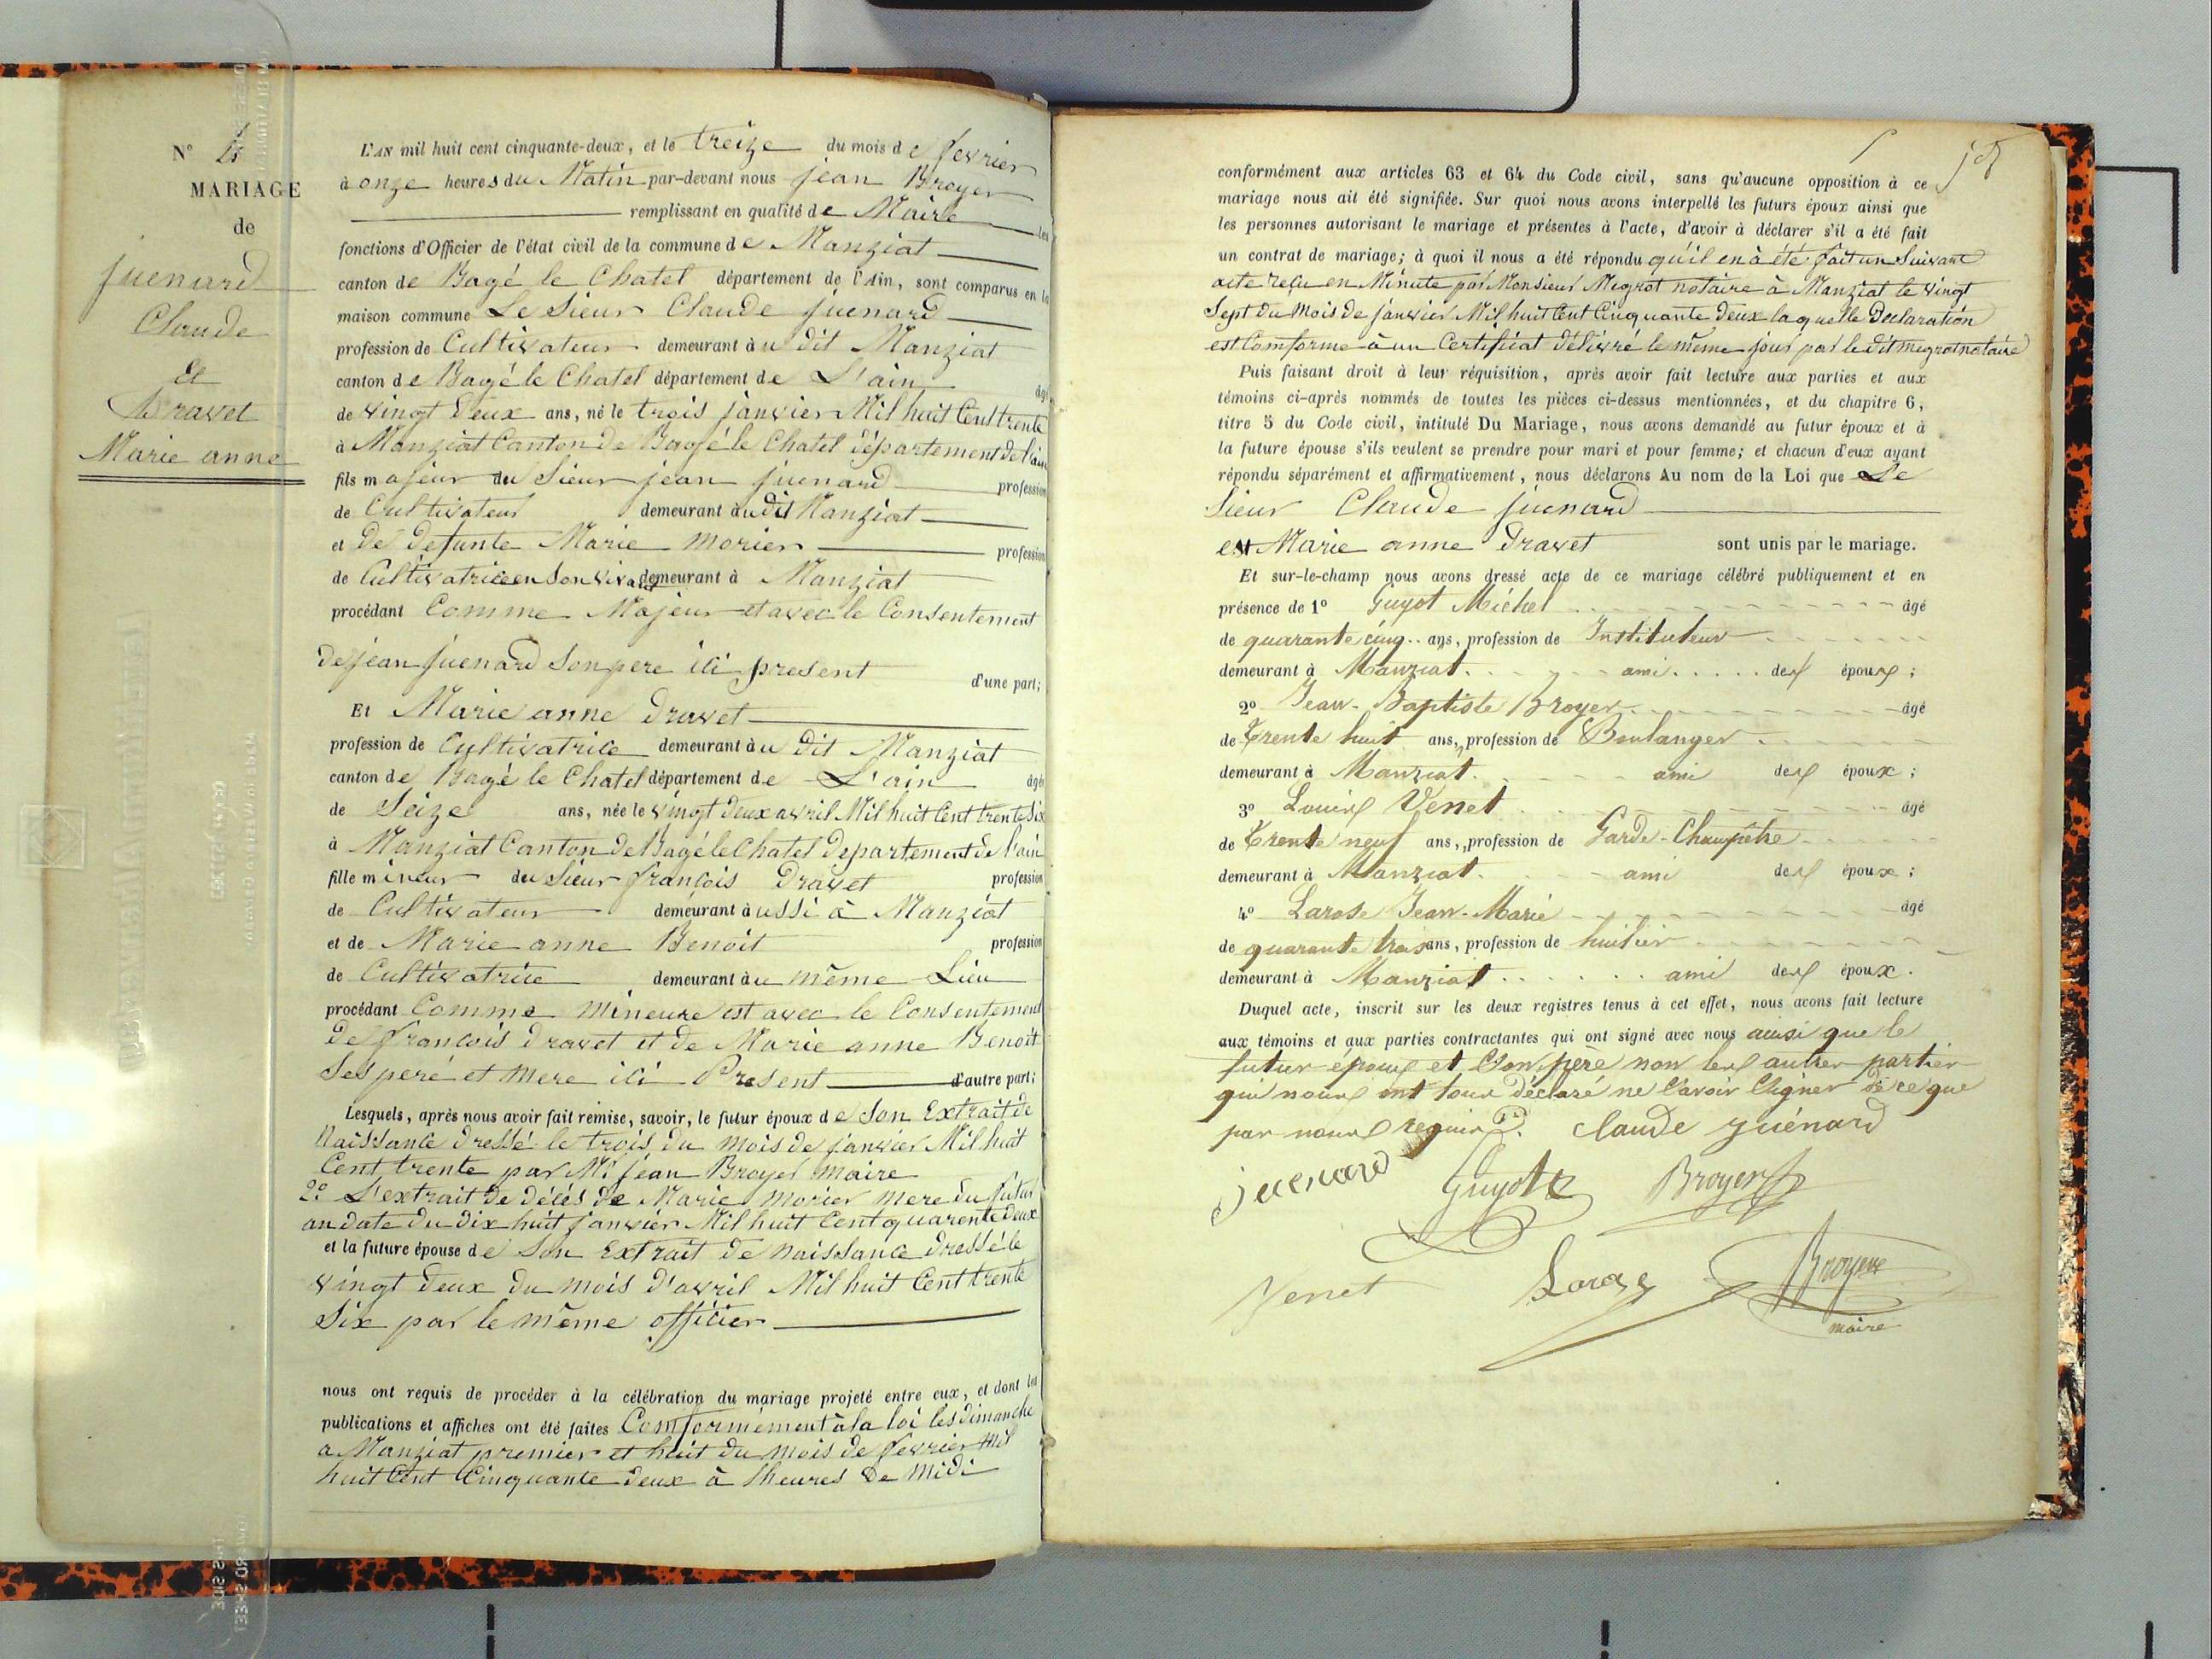 N° 4
MARIAGE
de
juenard
Claude
et
Dravet
Marie anne
L'AN mil huit cent cinquante-deux, et le treize du mois de fevrier
à onze heures du Matin par-devant nous jean Broyer
remplissant en qualité de Maire les
fonctions d'Officier de l'état civil de la commune de Manziat
canton de Bagé le Chatel département de l'Ain, sont comparus en la
maison commune Le Sieur Claude juenard
profession de Cultivateur demeurant à u dit Manziat
canton de Bagé le Chatel département de L'ain âgé
de vingt deux ans, né le trois janvier Mil huit Cent trente
à Manziat Canton de Bagé le Chatel département de l'ain
fils majeur du Sieur jean juenard profession
de Cultivateur demeurant audit Manziat
et de defunte Marie morier profession
de Cultivatrice en Son vivant demeurant à Manziat
procédant Comme Majeur et avec le Consentement
de jean juenard Son pere ici present d'une part;
Et Marie anne dravet
profession de Cultivatrice demeurant à u dit Manziat
canton de Bagé le Chatel département de L'ain âgée
de Seize ans, née le vingt deux avril Mil huit Cent trente Six
à Manziat Canton de Bagé le Chatel departement de l'ain
fille mineur du Sieur françois Dravet profession
de Cultivateur demeurant à ussi à Manziat
et de Marie anne Benoit profession
de Cultivatrice demeurant à u même Lieu
procédant Comme mineure est avec le Consentement
de françois dravet et de Marie anne Benoit
Ses peré et mere ici Present d'autre part;
Lesquels, après nous avoir fait remise, savoir, le futur époux de Son Extrait de
Naissance dressé le trois du mois de janvier Mil huit
Cent trente par Mr jean Broyer maire
2° L'extrait de décés de Marie morier mere du futur
en date du dix huit janvier Mil huit Cent quarente deux
et la future épouse de Son Extrait de naissance dressé le
vingt deux du mois d'avril Mil huit Cent trente
Six par le même officier
nous ont requis de procéder à la célébration du mariage projeté entre eux, et dont les
publications et affiches ont été faites Conformément à la loi les dimanche
a Manziat premier et huit du mois de fevrier mil
huit Cent Cinquante deux à heures de midi
conformément aux articles 63 et 64 du Code civil, sans qu'aucune opposition à ce
mariage nous ait été signifiée. Sur quoi nous avons interpellé les futurs époux ainsi que
les personnes autorisant le mariage et présentes à l'acte, d'avoir à déclarer s'il a été fait
un contrat de mariage; à quoi il nous a été répondu qu'il en à été fait un Suivant
acte reçu en Minute par Monsieur Migrot notaire à Manziat le vingt
Sept du Mois de janvier Mil huit Cent Cinquante deux laquelle Declaration
est Conforme à un Certifiat délivré le même jour par le dit migrot notaire
Puis faisant droit à leur réquisition, après avoir fait lecture aux parties et aux
témoins ci-après nommés de toutes les pièces ci-dessus mentionnées, et du chapitre 6,
titre 5 du Code civil, intitulé Du Mariage, nous avons demandé au futur époux et à
la future épouse s'ils veulent se prendre pour mari et pour femme; et chacun d'eux ayant
répondu séparément et affirmativement, nous déclarons Au nom de la Loi que Le
Sieur Claude juenard
et Marie anne dravet sont unis par le mariage.
Et sur-le-champ nous avons dressé acte de ce mariage célébré publiquement et en
présence de 1° Guyot Michel âgé
de quarante cinq ans, profession de Instituteur
demeurant à Manziat ami des époux;
2° Jean-Baptiste Broyer âgé
de Trente huit ans, profession de Boulanger
demeurant à Manziat ami des époux;
3° Louis Venet âgé
de Trente neuf ans, profession de Garde-Champêtre
demeurant à Manziat ami des époux;
4° Larose Jean-Marie âgé
de quarante trois ans, profession de huilier
demeurant à Manziat ami des époux.
Duquel acte, inscrit sur les deux registres tenus à cet effet, nous avons fait lecture
aux témoins et aux parties contractantes qui ont signé avec nous ainsi que le
futur époux et Son père non les autres parties
qui nous ont tous déclaré ne Savoir Signer de ce que
par nous requis. Claude juénard
juenard Guyot Broyer
Venet Laroze Broyer
maire